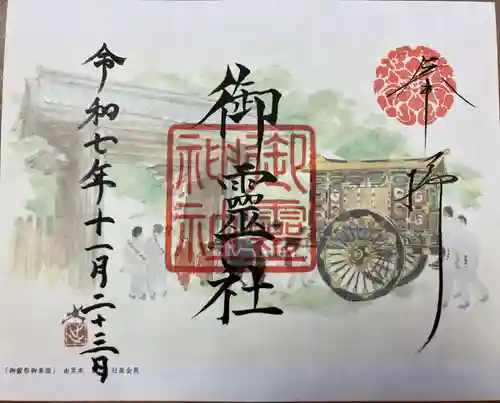 奉拝
御靈社
御靈神社
令和七年十一月二十三日
「御靈祭御車圖」 由里本 日展会員